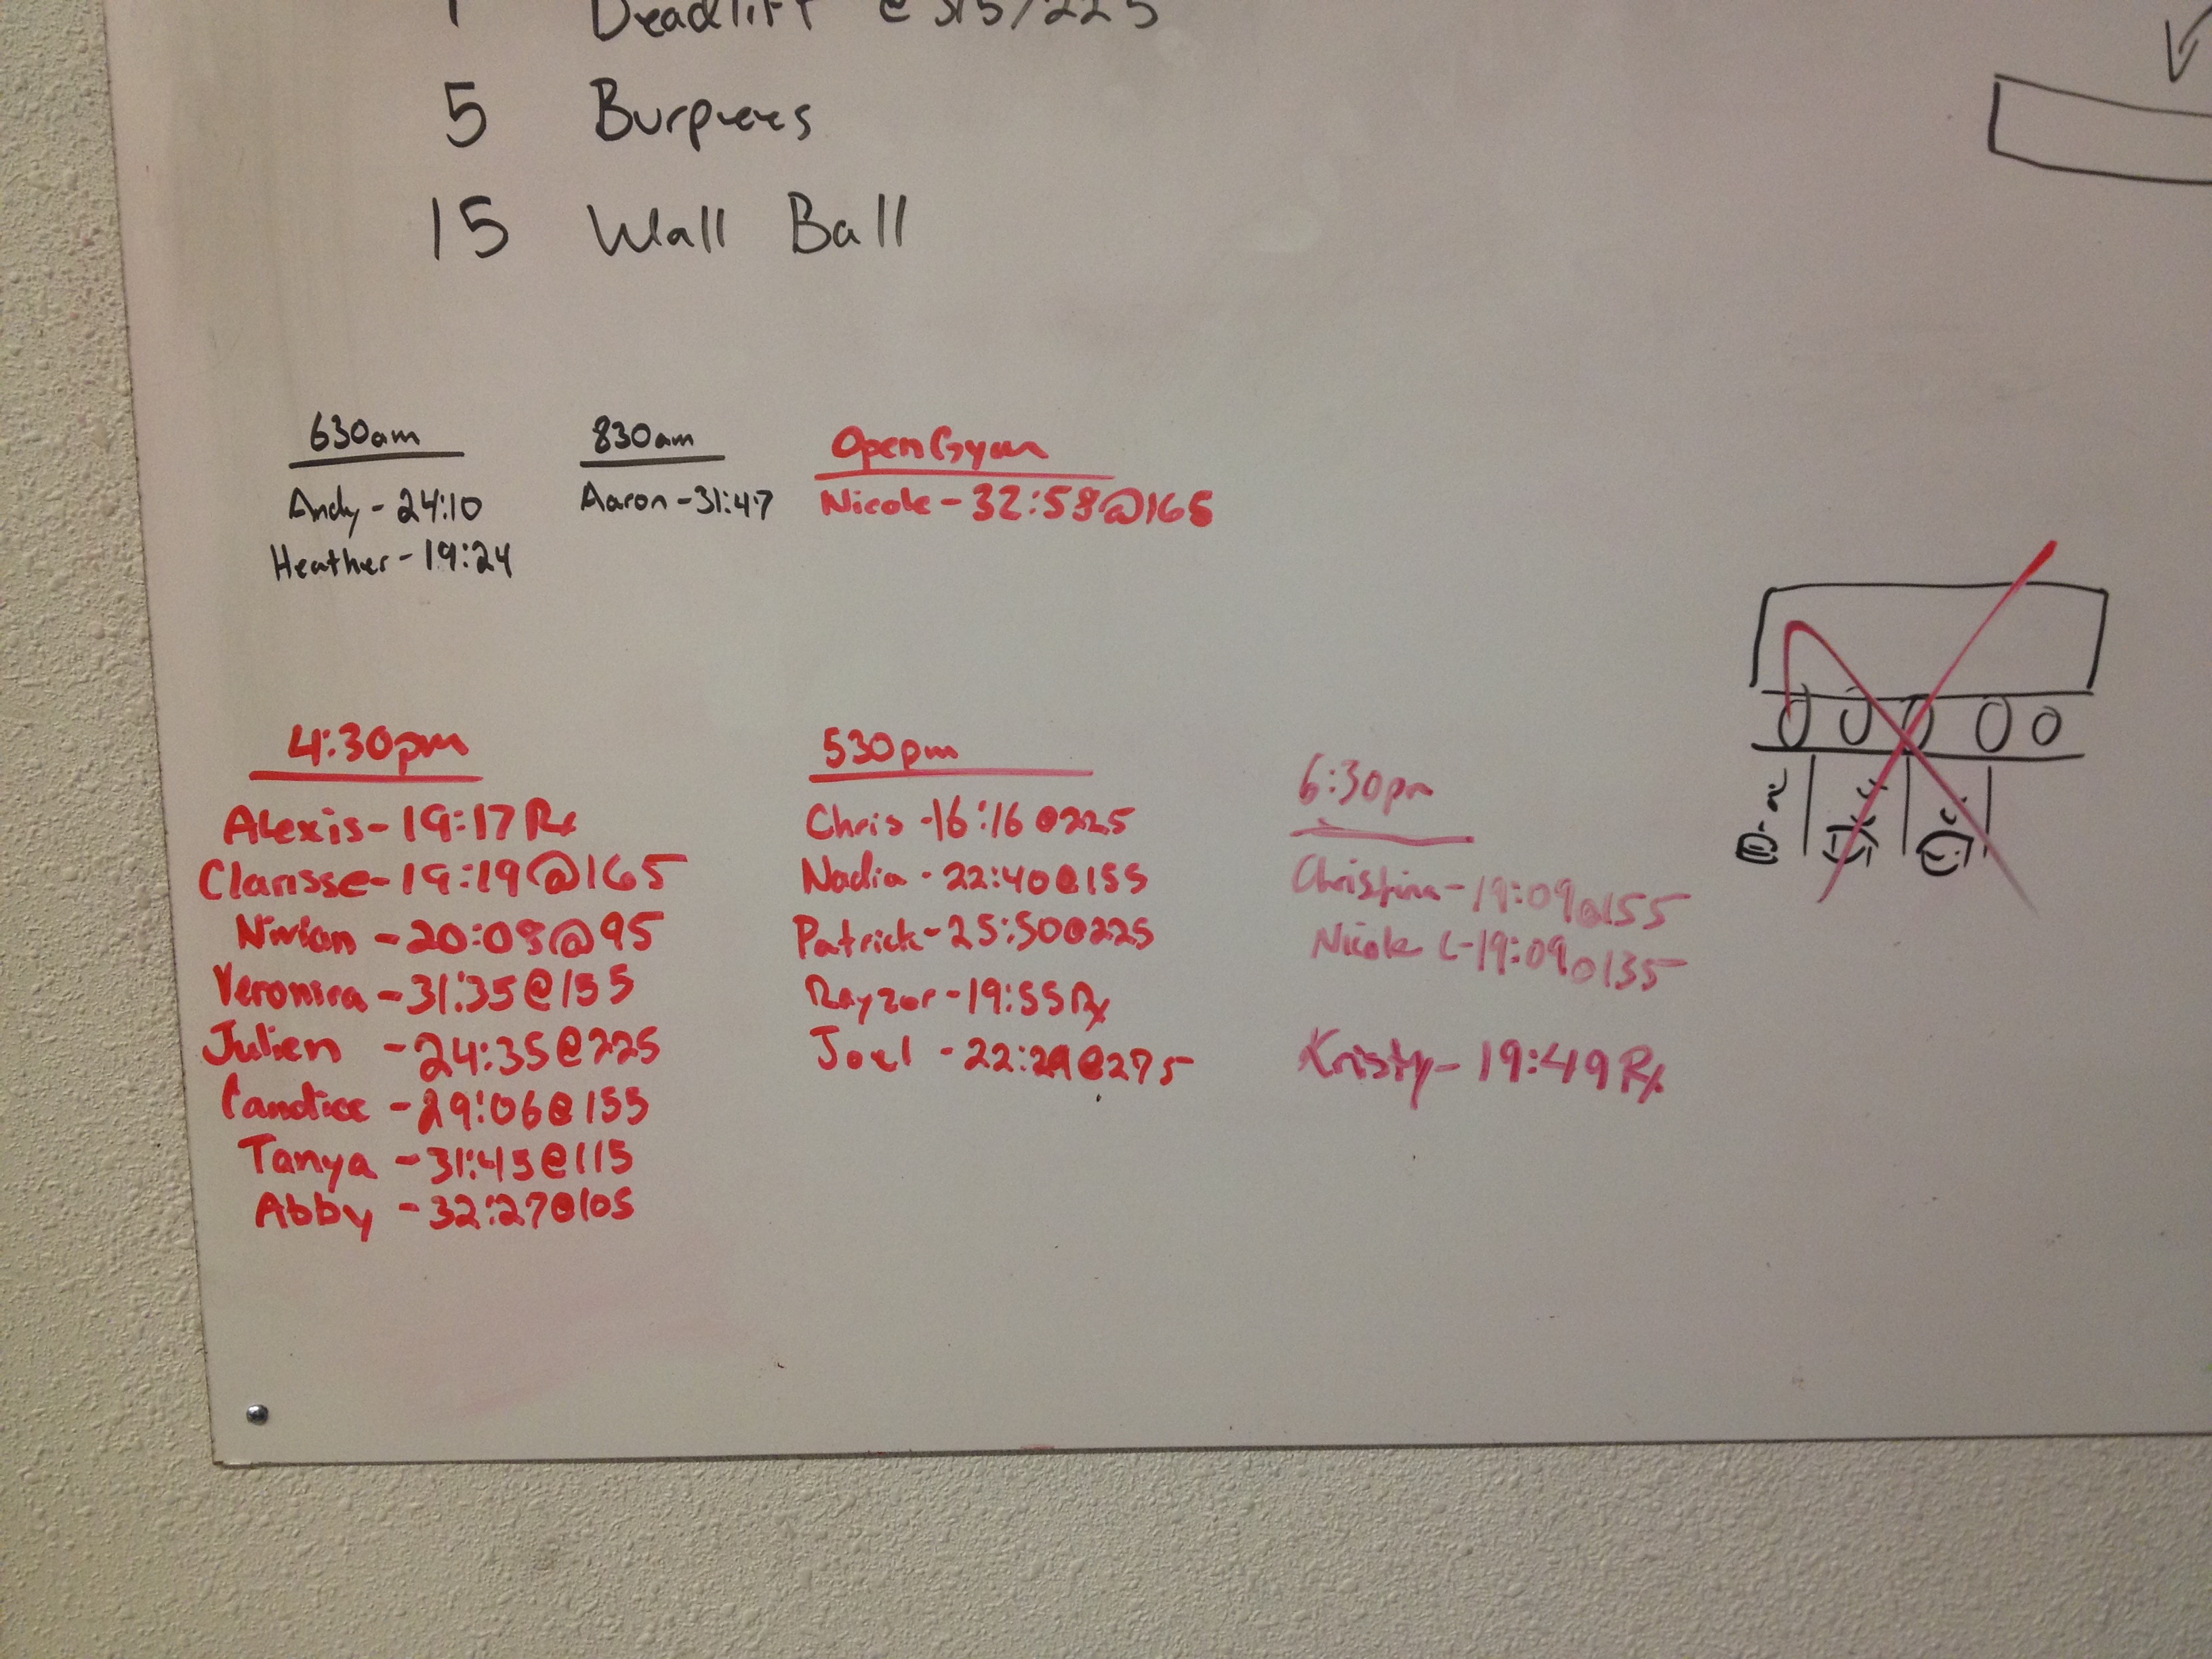 1 Deadlift @ 315/225
5 Burpees
15 Wall Ball
630am
Andy - 24:10
Heather - 19:24
830am
Aaron - 31:47
Open Gym
Nicole - 32:58@165
4:30pm
Alexis - 19:17 Rx
Clarisse - 19:19@165
Nivian - 20:08@95
Veronica - 31:35@155
Julien - 24:35@225
Candice - 29:06@155
Tanya - 31:45@115
Abby - 32:27@105
530pm
Chris - 16:16@225
Nadia - 22:40@155
Patrick - 25:50@225
Rayzor - 19:55 Rx
Joel - 22:29@275
6:30pm
Christina - 19:09@155
Nicole L - 19:09@135
Kristy - 19:49 Rx